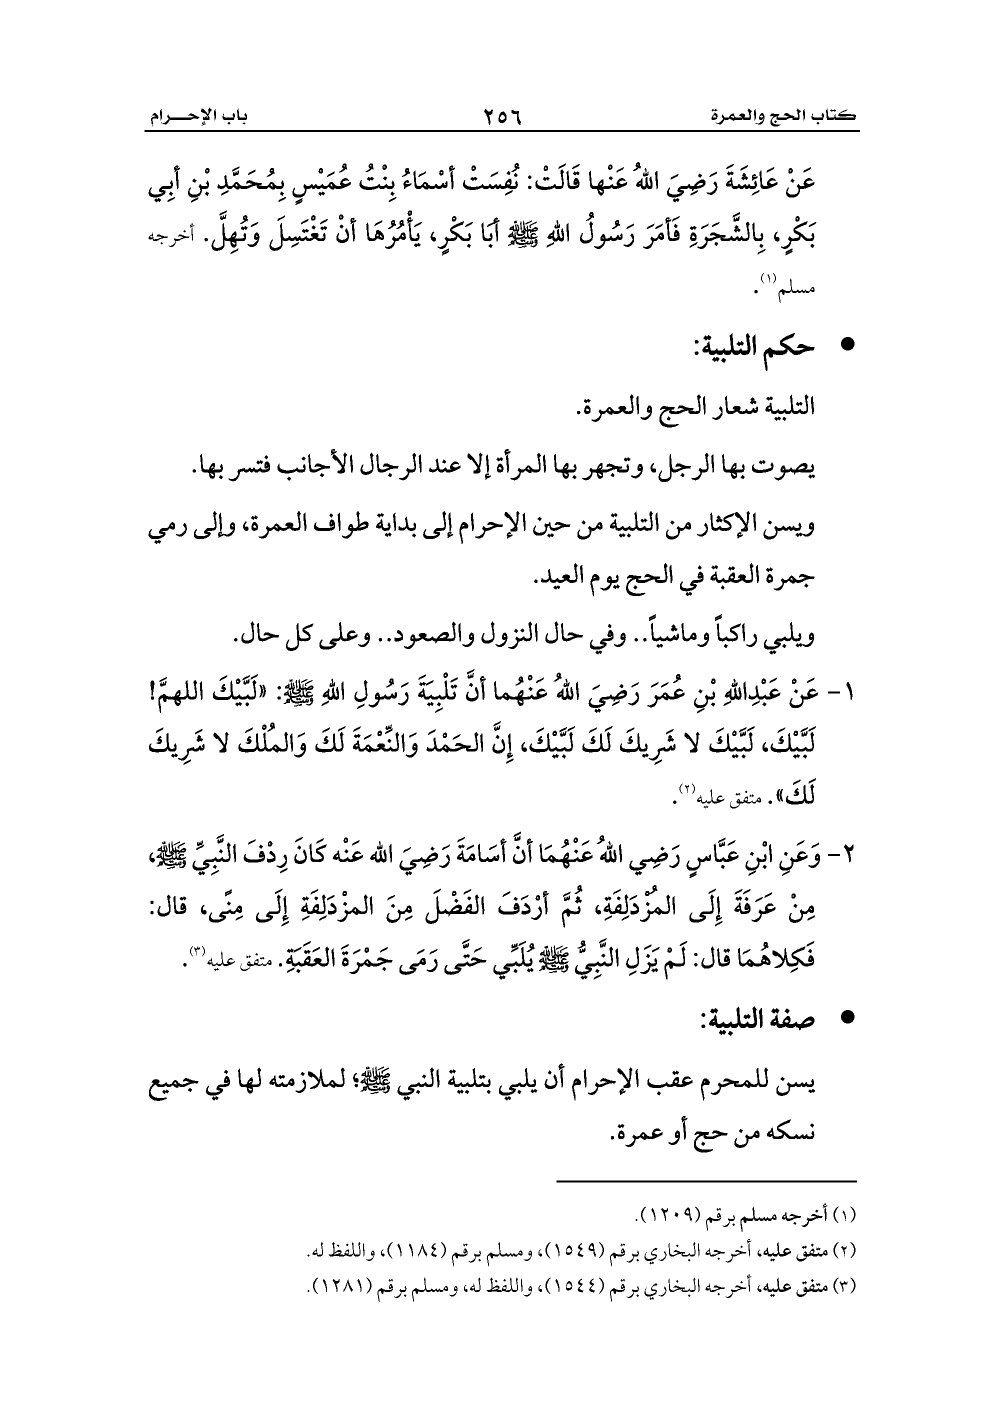 كتاب الحج والعمرة ٢٥٦ باب الإحــــرام
عَنْ عَائِشَةَ رَضِيَ اللهُ عَنْها قَالَتْ: نُفِسَتْ أسْمَاءُ بِنْتُ عُمَيْسٍ بِمُحَمَّدِ بْنِ أبِي
بَكْرٍ، بِالشَّجَرَةِ فَأمَرَ رَسُولُ اللهِ ﷺ أبَا بَكْرٍ، يَأْمُرُهَا أنْ تَغْتَسِلَ وَتُهِلَّ. أخرجه
مسلم(١).
• حكم التلبية:
التلبية شعار الحج والعمرة.
يصوت بها الرجل، وتجهر بها المرأة إلا عند الرجال الأجانب فتسر بها.
ويسن الإكثار من التلبية من حين الإحرام إلى بداية طواف العمرة، وإلى رمي
جمرة العقبة في الحج يوم العيد.
ويلبي راكباً وماشياً.. وفي حال النزول والصعود.. وعلى كل حال.
١- عَنْ عَبْدِاللهِ بْنِ عُمَرَ رَضِيَ اللهُ عَنْهُما أنَّ تَلْبِيَةَ رَسُولِ اللهِ ﷺ: «لَبَّيْكَ اللهمَّ!
لَبَّيْكَ، لَبَّيْكَ لا شَرِيكَ لَكَ لَبَّيْكَ، إنَّ الحَمْدَ وَالنِّعْمَةَ لَكَ وَالمُلْكَ لا شَرِيكَ
لَكَ». متفق عليه(٢).
٢- وَعَنِ ابْنِ عَبَّاسٍ رَضِي اللهُ عَنْهُمَا أنَّ أسَامَةَ رَضِيَ الله عَنْه كَانَ رِدْفَ النَّبِيِّ ﷺ،
مِنْ عَرَفَةَ إلَى المُزْدَلِفَةِ، ثُمَّ أرْدَفَ الفَضْلَ مِنَ المزْدَلِفَةِ إلَى مِنًى، قال:
فَكِلاهُمَا قال: لَمْ يَزَلِ النَّبِيُّ ﷺ يُلَبِّي حَتَّى رَمَى جَمْرَةَ العَقَبَةِ. متفق عليه(٣).
• صفة التلبية:
يسن للمحرم عقب الإحرام أن يلبي بتلبية النبي ﷺ؛ لملازمته لها في جميع
نسكه من حج أو عمرة.
(١) أخرجه مسلم برقم (١٢٠٩).
(٢) متفق عليه، أخرجه البخاري برقم (١٥٤٩)، ومسلم برقم (١١٨٤)، واللفظ له.
(٣) متفق عليه، أخرجه البخاري برقم (١٥٤٤)، واللفظ له، ومسلم برقم (١٢٨١).